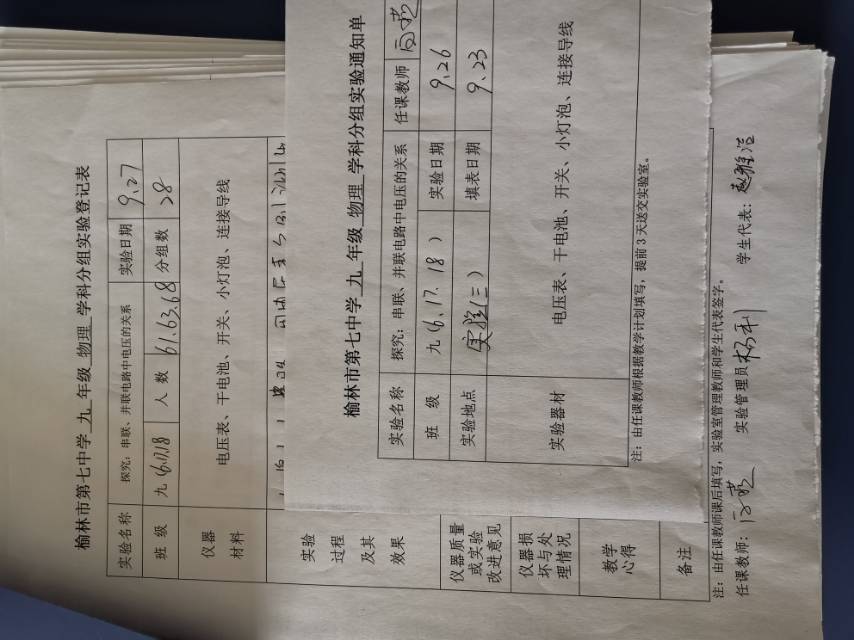 榆林市第七中学 九 年级 物理 学科分组实验登记表
实验名称 探究：串联、并联电路中电压的关系 实验日期 9.27
班 级 九 16.17.18 人 数 61.63.68 分组数 28
仪器材料 电压表、干电池、开关、小灯泡、连接导线
实验过程及其效果
仪器质量或实验改进意见
仪器损坏与处理情况
教学心得
备注
注：由任课教师课后填写，实验室管理教师和学生代表签字。
任课教师： 实验管理员 学生代表：
榆林市第七中学 九 年级 物理 学科分组实验通知单
实验名称 探究：串联、并联电路中电压的关系 任课教师
班 级 九 (16.17.18) 实验日期 9.26
实验地点 实验(二) 填表日期 9.23
实验器材 电压表、干电池、开关、小灯泡、连接导线
注：由任课教师根据教学计划填写，提前 3 天送交实验室。